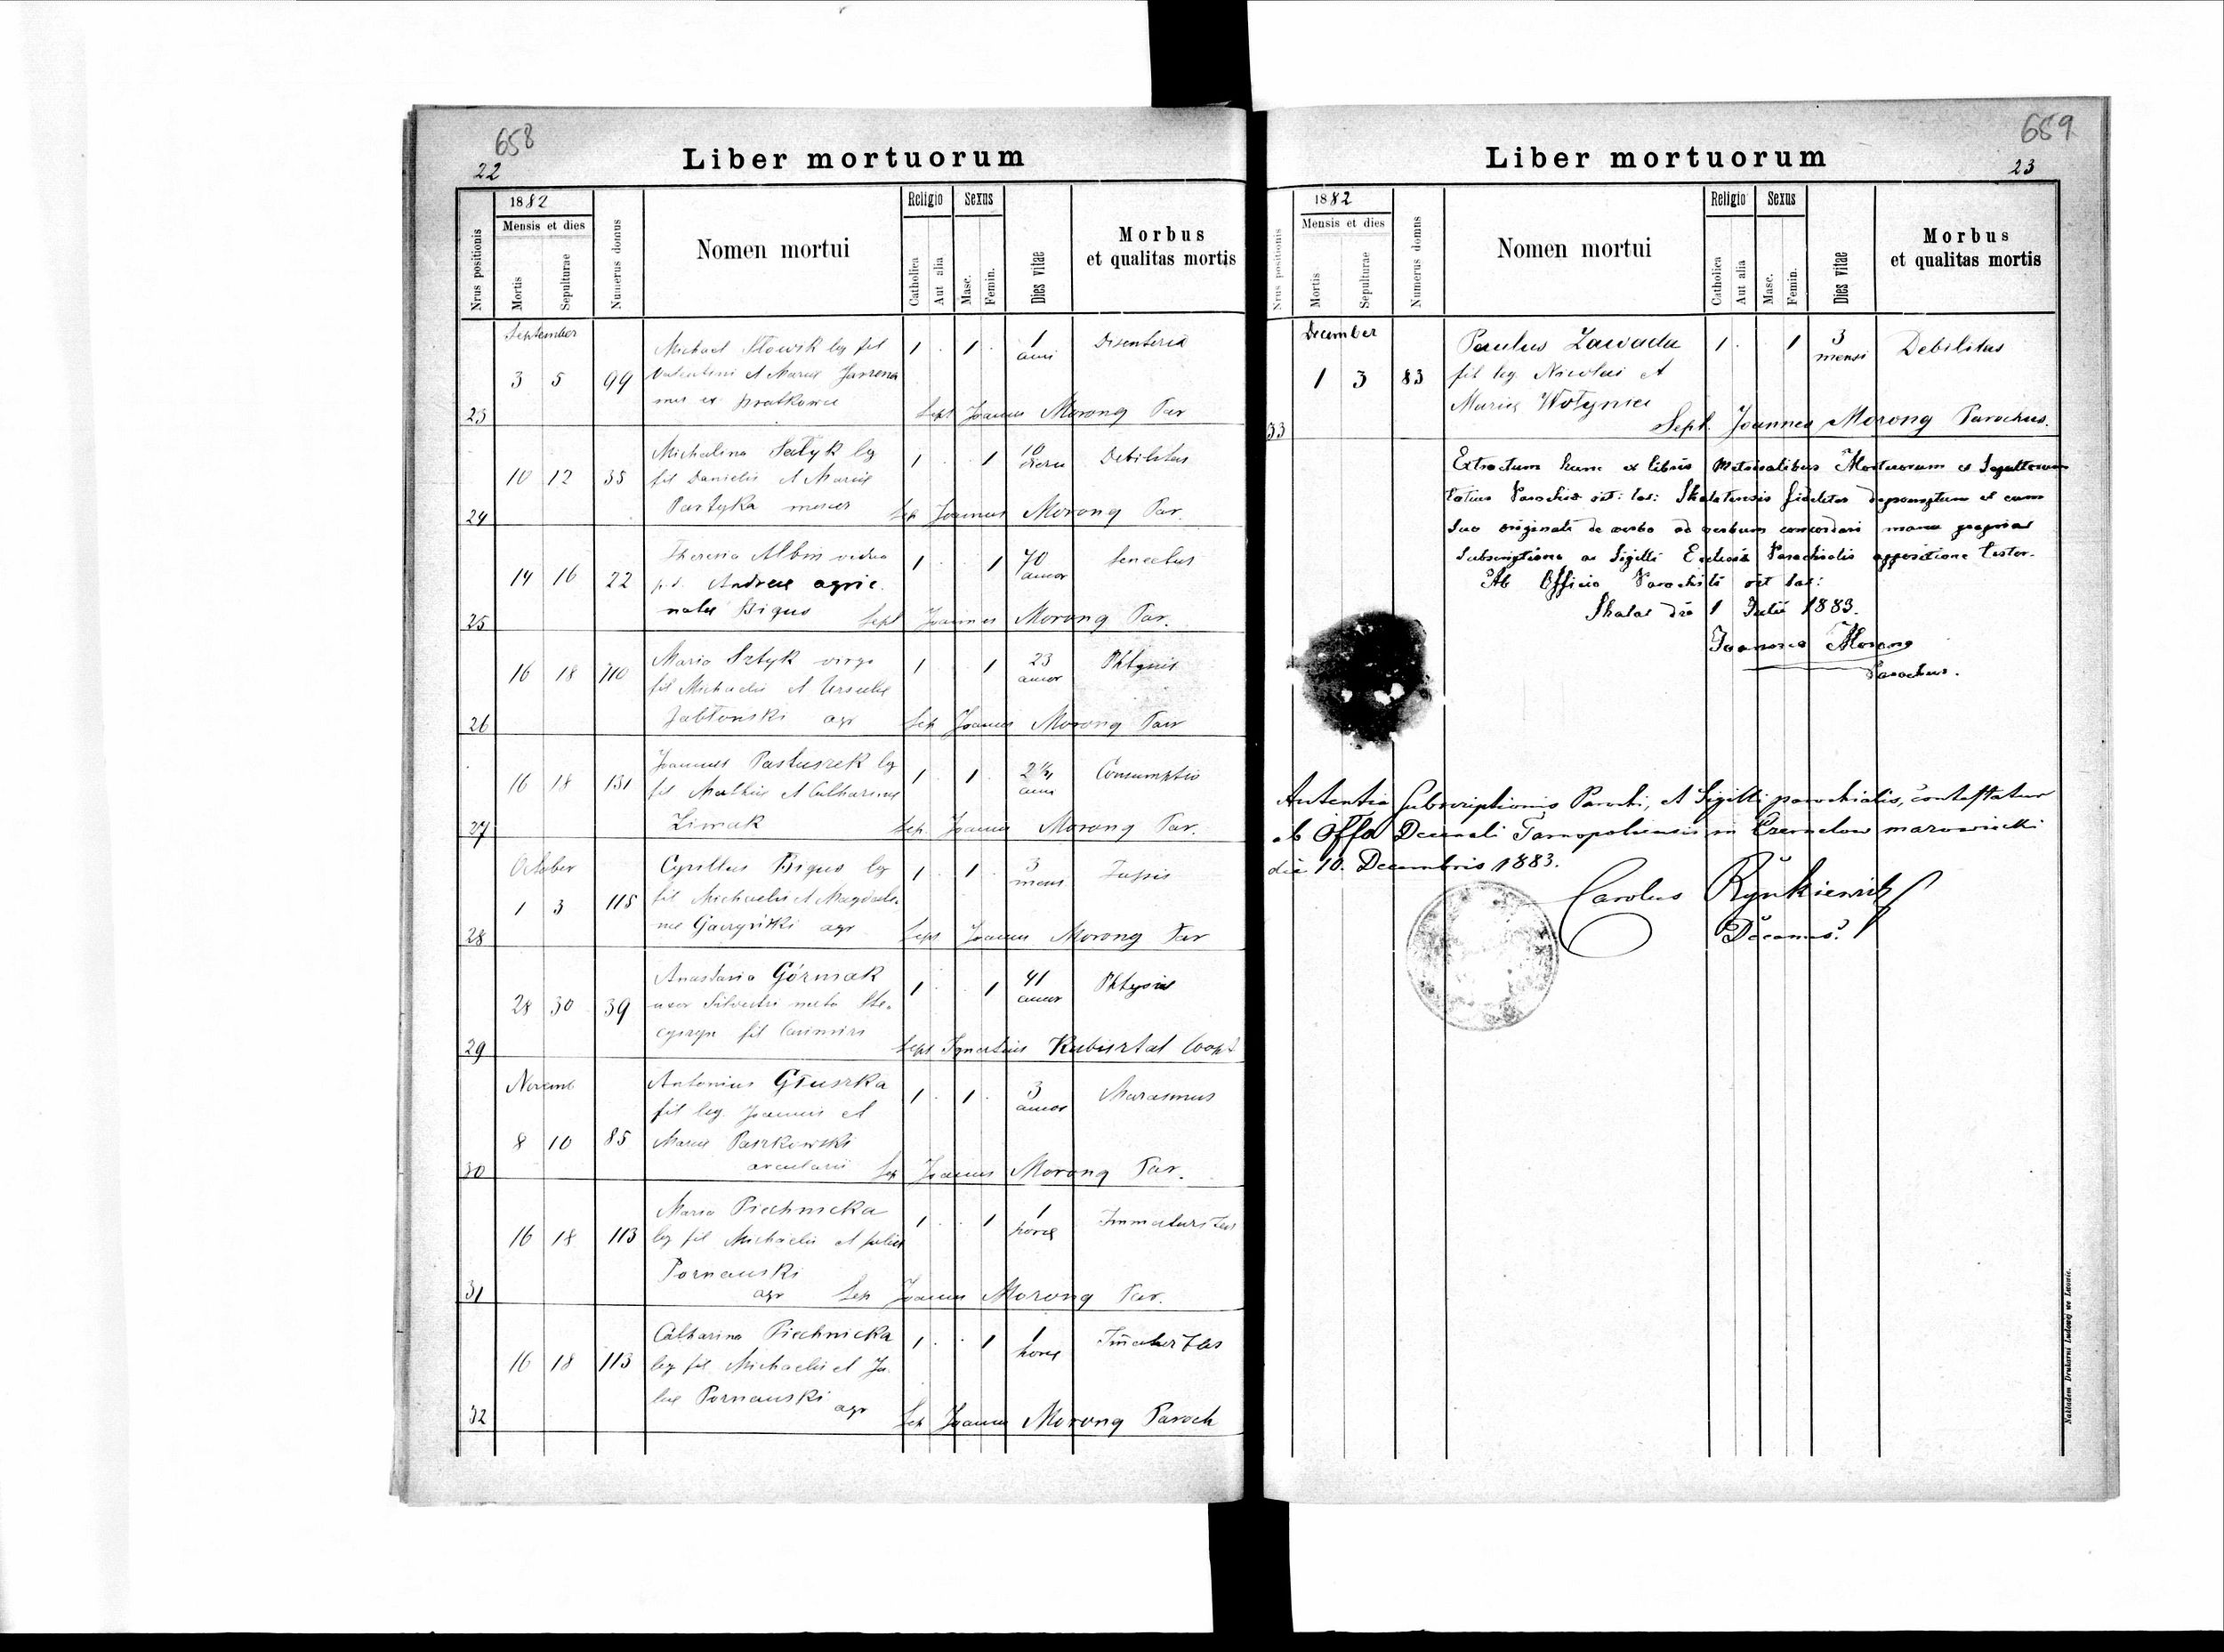 658
22
Liber mortuorum
Nrus positionis
1882
Mensis et dies
Mortis
Sepulturae
Numerus domus
Nomen mortui
Religio
Catholica
Aut alia
Sexus
Masc.
Femin.
Dies vitae
Morbus
et qualitas mortis
September
Michael Słowik leg fil 1 1 1
3 5 99 Valentini et Mariae anni Disenteria
23 Sept Joannes Morong Par
Michalina Sałyk leg 1 1 10
10 12 35 fil Danielis et Mariae dieru Debilitas
Partyka
24 Sep Joannes Morong Par.
Theresia vidua 1 1 70
14 16 22 Andreae agric. annor Senectus
natu Biguo
25 Sept Joannes Morong Par.
Maria virgo 1 1 23
16 18 110 fil Michaelis et Ursulae annor Phtysis
Jabłonski agr
26 Sep Joannes Morong Par
Joannes Pastuszek leg 1 1 2½
16 18 131 fil Mathie et Catharinae anni Consumptio
Zimak
27 Sep. Joannes Morong Par.
October
Cyrillus Biguo leg 1 1 3
1 3 115 fil Michaelis et Magdale- mens Tussis
nae agr
28 Sept Joannes Morong Par
Anastasia Górniak 1 1 41
28 30 39 uxor Silvestri nata Ste- annor Phtysis
fil Casimiri
29 Sept Ignatius Coop
Novemb
Antonius Głuszka 1 1 3
fil leg. Joannis et annor Marasmus
8 10 85 Mariae Paszkowski
arcularii
30 Sep Joannes Morong Par.
Maria Piechnicka 1 1 1
16 18 113 leg fil Michaelis et Juliae horae Immaturitas
Pornauski
agr
31 Sep Joannes Morong Par.
Catharina Piechnicka 1 1 1
16 18 113 leg fil Michaelis et Ju- horae
liae Pornauski agr
32 Sep Joannes Morong Paroch
659
23
Liber mortuorum
Nrus positionis
1882
Mensis et dies
Mortis
Sepulturae
Numerus domus
Nomen mortui
Religio
Catholica
Aut alia
Sexus
Masc.
Femin.
Dies vitae
Morbus
et qualitas mortis
December
Paulus Zawada 1 1 3
1 3 83 fil leg Nicolai et mensi Debilitas
Mariae Wołyniec
33 Sept. Joannes Morong Parochus.
Extractum hunc ex libris Metricalibus Mortuorum et Sepultorum
totius Parochiae rit: lat: Skalatensis fideliter depromptum et cum
suo originali de verbo ad verbum concordari manu propria
Subscriptione ac Sigilli Ecclesiae Parochialis appositione testor.
Ab Officio Parochiali rit lat:
Skalat die 1 Julii 1883.
Joannes Morong
Parochus.
Autentia Subscriptionis Parochi, et Sigilli parochialis, contestatur
ab Offo Decanali Tarnopoliensi in Czernelow mazowiecki
die 10. Decembris 1883.
Carolus Rynkiewicz
Decanus.
Nakładem Drukarni Ludowej we Lwowie.